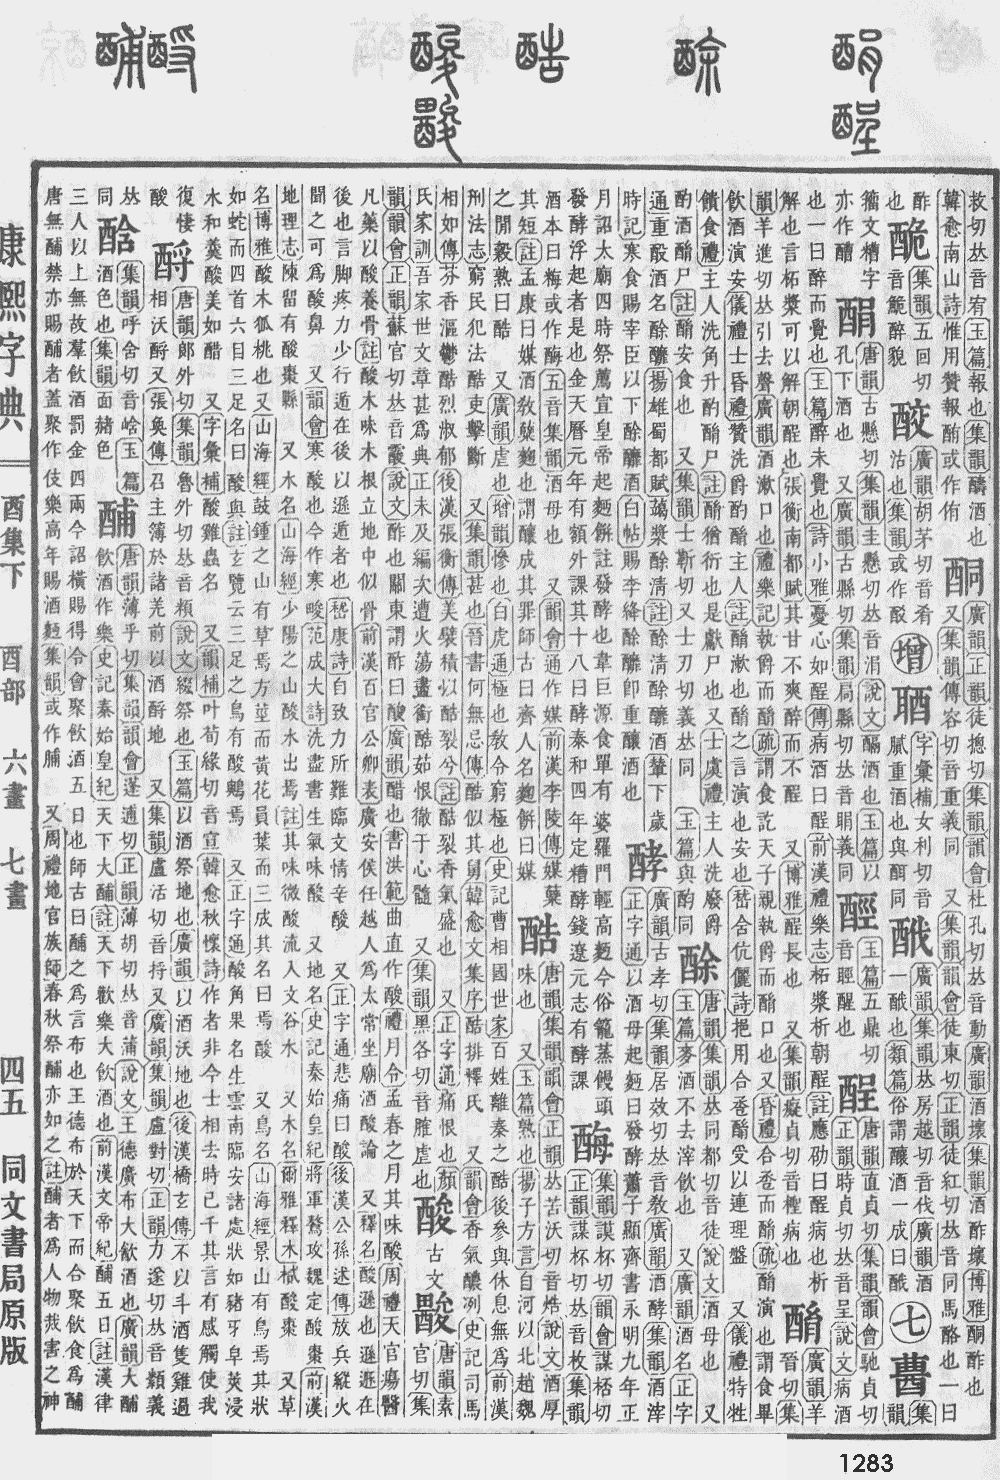 救切𠀤音宥玉篇報也集韻醻酒也
韓愈南山詩惟用贊報酭或作侑
酮
廣韻正韻徒摠切集韻韻會杜孔切𠀤音動廣韻酒壞集韻酒酢壞博雅酮酢也
又集韻傳容切音重義同 又集韻韻會徒東切正韻徒紅切𠀤音同馬酪也一曰
酢也
集韻五回切
音嵬醉貌
廣韻胡茅切音肴
沽也集韻或作
增
字彙補女利切音
膩重酒也與酏同
廣韻集韻𠀤房越切音伐廣韻酒
一酘也類篇俗謂釀酒一成曰酘
七
集韻
籀文糟字
亦作醩
酳
唐韻古懸切集韻圭懸切𠀤音涓說文酳酒也玉篇以
孔下酒也 又廣韻古縣切集韻扃縣切𠀤音睊義同
玉篇五鼎切
音脛醒也
酲
唐韻直貞切集韻韻會馳貞切
正韻時貞切𠀤音呈說文病酒
也一曰醉而覺也玉篇醉未覺也詩小雅憂心如酲傳病酒曰酲前漢禮樂志柘漿析朝酲註應劭曰酲病也析
解也言柘漿可以解朝酲也張衡南都賦其甘不爽醉而不酲 又博雅酲長也 又集韻癡貞切音檉病也
酳
廣韻羊晉切集
韻羊進切𠀤引去聲廣韻酒漱口也禮樂記執爵而酳疏謂食訖天子親執爵而酳口也又昏禮合巹而酳疏酳演也謂食畢
飲酒演安儀禮士昏禮贊洗爵酌酳主人註酳漱也酳之言演也安也嵇含伉儷詩挹用合巹酳受以連理盤 又儀禮特牲
饋食禮主人洗角升酌酳尸註酳猶衍也是獻尸也又士虞禮主人洗廢爵
酌酒酳尸註酳安食也 又集韻士靳切又士刃切義𠀤同 玉篇與酌同
酴
唐韻集韻𠀤同都切音徒說文酒母也 又
玉篇麥酒不去滓飲也 又廣韻酒名正字
通重釀酒名酴醾揚雄蜀都賦蒻漿酴清註酴清酴醾酒輦下歲
時記寒食賜宰臣以下酴醾酒白帖賜李絳酴醾卽重釀酒也
酵
廣韻古孝切集韻居效切𠀤音敎廣韻酒酵集韻酒滓
正字通以酒母起麪曰發酵蕭子顯齊書永明九年正
月詔太廟四時祭薦宣皇帝起麪餠註發酵也韋巨源食單有婆羅門輕高麪今俗籠蒸饅頭
發酵浮起者是也金天曆元年有額外課其十八曰酵泰和四年定糟酵錢遼元志有酵課
酶
集韻謨杯切韻會謀桮切
正韻謀杯切𠀤音枚集韻
酒本曰梅或作酶五音集韻酒母也 又韻會通作媒前漢李陵傳媒糵
其短註孟康曰媒酒敎糵麴也謂釀成其罪師古曰齊人名麴餠曰媒
酷
唐韻集韻韻會正韻𠀤苦沃切音焅說文酒厚
味也 又玉篇熟也揚子方言自河以北趙魏
之閒穀熟曰酷 又廣韻虐也增韻慘也白虎通極也敎令窮極也史記曹相國世家百姓離秦之酷後參與休息無爲前漢
刑法志窮民犯法酷吏擊斷 又集韻甚也晉書何無忌傳酷似其舅韓愈文集序酷排釋氏 又韻會香氣醲冽史記司馬
相如傳芬香漚鬱酷烈淑郁後漢張衡傳美襞積以酷裂兮註酷裂香氣盛也 又正字通痛恨也顏
氏家訓吾家世文章甚爲典正未及編次遭火蕩盡銜酷茹恨徹于心髓 又集韻黑各切音臛虐也
酸
古文
唐韻素官切集
韻韻會正韻蘇官切𠀤音霰說文酢也關東謂酢曰酸廣韻醋也書洪範曲直作酸禮月令孟春之月其味酸周禮天官瘍醫
凡藥以酸養骨註酸木味木根立地中似骨前漢百官公卿表廣安侯任越人爲太常坐廟酒酸論 又釋名酸遜也遜遁在
後也言脚疼力少行遁在後以遜遁者也嵇康詩自致力所難臨文情辛酸 又正字通悲痛曰酸後漢公孫述傳放兵縱火
聞之可爲酸鼻 又韻會寒酸也今作寒畯范成大詩洗盡書生氣味酸 又地名史記秦始皇紀將軍驁攻魏定酸棗前漢
地理志陳留有酸棗縣 又木名山海經少陽之山酸水出焉註其味微酸流入文谷水 又木名爾雅釋木樲酸棗 又草
名博雅酸木狐桃也又山海經鼓鍾之山有草焉方莖而黃花員葉而三成其名曰焉酸 又鳥名山海經景山有鳥焉其狀
如蛇而四首六目三足名曰酸與註玄覽云三足之鳥有酸鵝焉 又正字通酸角果名生雲南臨安諸處狀如豬牙皁莢浸
水和羹酸美如醋 又字彙補酸雞蟲名 又韻補叶荀緣切音宣韓愈秋懷詩作者非今士相去時已千其言有感觸使我
復悽酸
酹
唐韻郞外切集韻魯外切𠀤音頪說文綴祭也玉篇以酒祭地也廣韻以酒沃地也後漢橋玄傳不以斗酒隻雞過
相沃酹又張奐傳召主簿於諸羌前以酒酹地 又集韻盧活切音捋又廣韻集韻盧對切正韻力遂切𠀤音類義
𠀤同
集韻呼含切音峆玉篇
酒色也集韻面赭色
酺
唐韻薄乎切集韻韻會蓬逋切正韻薄胡切𠀤音蒲說文王德廣布大飮酒也廣韻大酺
飮酒作樂史記秦始皇紀天下大酺註天下歡樂大飮酒也前漢文帝紀酺五日註漢律
三人以上無故羣飮酒罰金四兩今詔橫賜得令會聚飮酒五日也師古曰酺之爲言布也王德布於天下而合聚飮食爲酺
唐無酺禁亦賜酺者蓋聚作伎樂高年賜酒麪集韻或作脯 又周禮地官族師春秋祭酺亦如之註酺者爲人物烖害之神
康熙字典
酉集下 酉部 六畫 七畫
四五 同文書局原版
1283